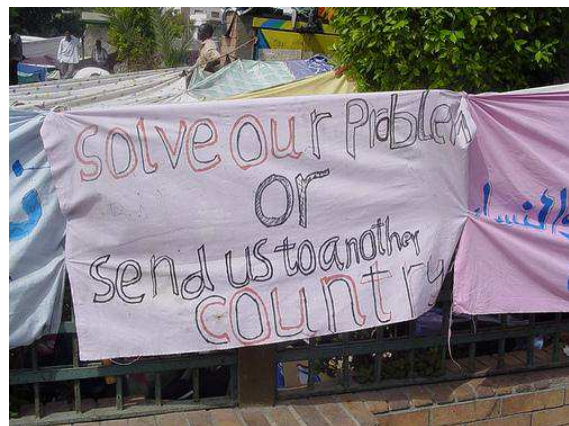 Solve our Problem
or
send us to another
country